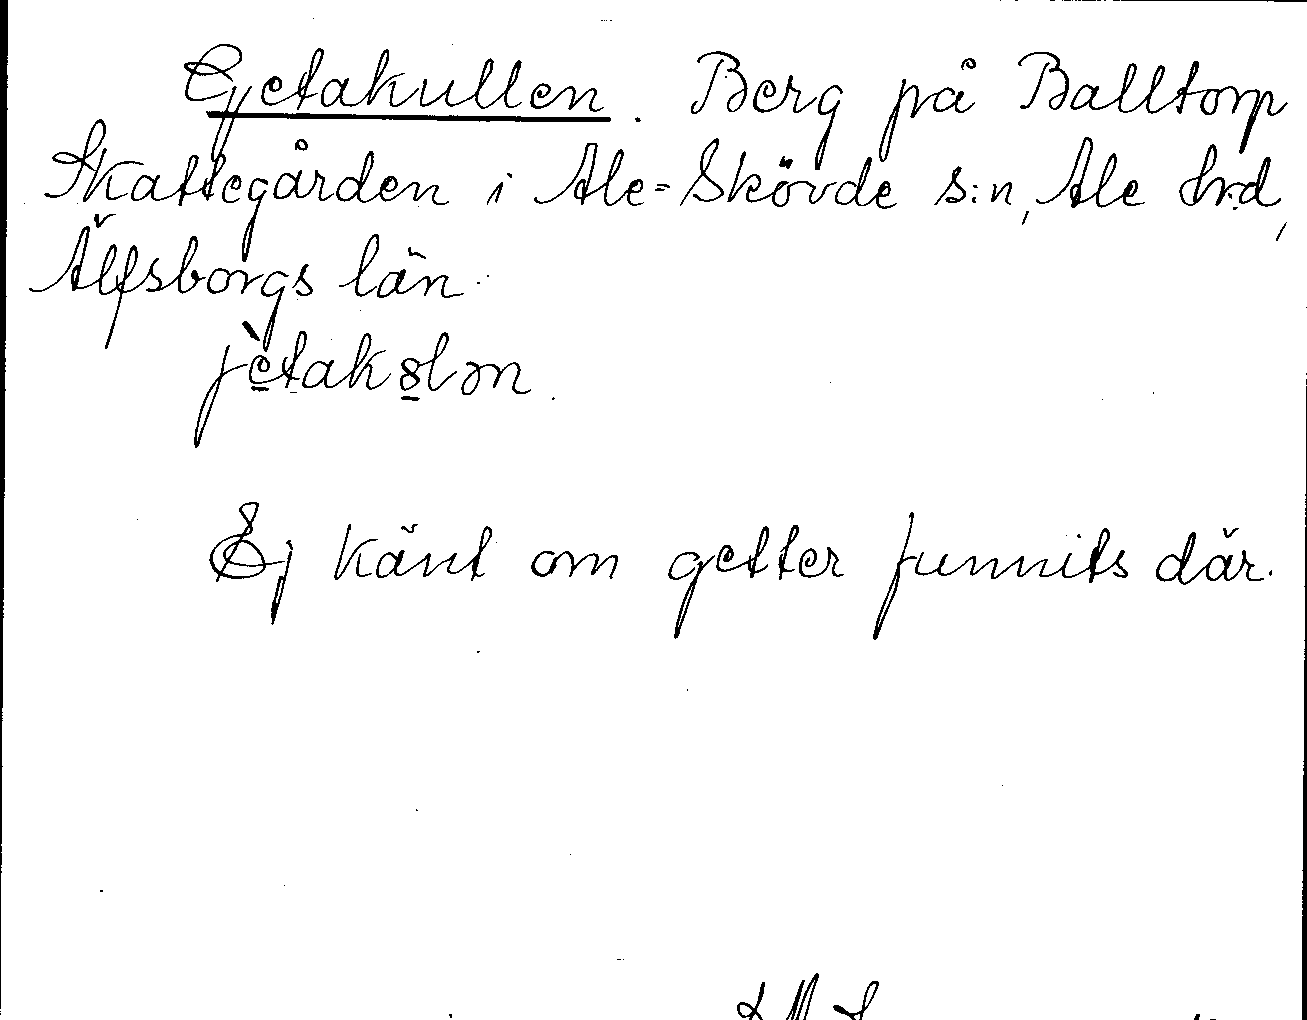 Getakullen. Berg på Balltorp
Skattegården i Ale-Skövde s:n, Ale hrd,
Älfsborgs län.
Ej känt om getter funnits där.